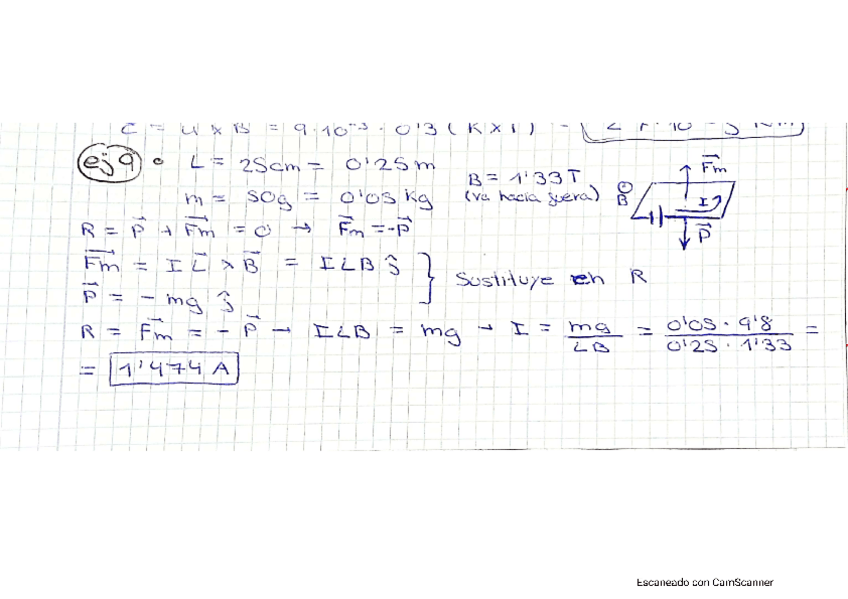 ej 9 • L = 25cm = 0'25m
B = 1'33T
(va hacia fuera)
m = 50g = 0'05 kg
B
Fm
I
P
R = P + Fm = 0 → Fm = -P
Fm = I L × B = ILB ĵ
P = - mg ĵ
Sustituye en R
R = Fm = - P → ILB = mg → I = mg / LB = 0'05 · 9'8 / 0'25 · 1'33 =
= 1'474 A
Escaneado con CamScanner